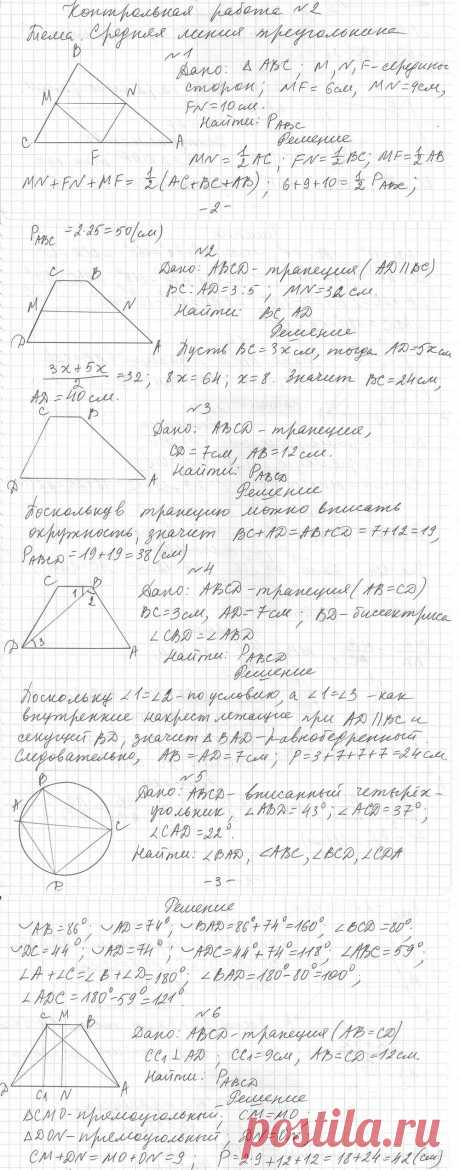 Контрольная работа №2
Тема. Средняя линия треугольника
№1
B
M
N
C
F
A
Дано: △ABC; M, N, F - середины
сторон; MF = 6см, MN = 9см,
FN = 10см.
Найти: P_ABC
Решение
MN = 1/2 AC; FN = 1/2 BC; MF = 1/2 AB
MN + FN + MF = 1/2 (AC + BC + AB); 6 + 9 + 10 = 1/2 P_ABC;
- 2 -
P_ABC = 2·25 = 50 (см)
№2
C
B
M
N
D
A
Дано: ABCD - трапеция (AD ∥ BC)
BC : AD = 3 : 5; MN = 32 см.
Найти: BC, AD
Решение
Пусть BC = 3x см, тогда AD = 5x см
(3x + 5x)/2 = 32; 8x = 64; x = 8. Значит BC = 24см,
AD = 40 см.
№3
C
B
D
A
Дано: ABCD - трапеция,
CD = 7см, AB = 12см.
Найти: P_ABCD
Решение
Поскольку в трапецию можно вписать
окружность, значит BC + AD = AB + CD = 7 + 12 = 19,
P_ABCD = 19 + 19 = 38 (см)
№4
C
B
1
2
D
3
A
Дано: ABCD - трапеция (AB = CD)
BC = 3см, AD = 7см; BD - биссектриса
∠CBD = ∠ABD
Найти: P_ABCD
Решение
Поскольку ∠1 = ∠2 - по условию, а ∠1 = ∠3 - как
внутренние накрест лежащие при AD ∥ BC и
секущей BD, значит △BAD - равнобедренный
Следовательно, AB = AD = 7см; P = 3 + 7 + 7 + 7 = 24см
№5
B
A
C
D
Дано: ABCD - вписанный четырёх-
угольник, ∠ABD = 43°; ∠ACD = 37°;
∠CAD = 22°.
Найти: ∠BAD, ∠ABC, ∠BCD, ∠CDA
- 3 -
Решение
◡AB = 86°, ◡AD = 74°, ◡BAD = 86° + 74° = 160°, ∠BCD = 80°.
◡DC = 44°; ◡AD = 74°; ◡ADC = 44° + 74° = 118°, ∠ABC = 59°;
∠A + ∠C = ∠B + ∠D = 180°; ∠BAD = 180° - 80° = 100°,
∠ADC = 180° - 59° = 121°
№6
C
M
B
D
C1
N
A
Дано: ABCD - трапеция (AB = CD)
CC1 ⊥ AD; CC1 = 9см, AB = CD = 12см.
Найти: P_ABCD
Решение
△CMO - прямоугольный; CM = MO
△DON - прямоугольный, DN = ON
CM + DN = MO + ON = 9; P = 2·9 + 12 + 12 = 18 + 24 = 42 (см)
Postila.ru